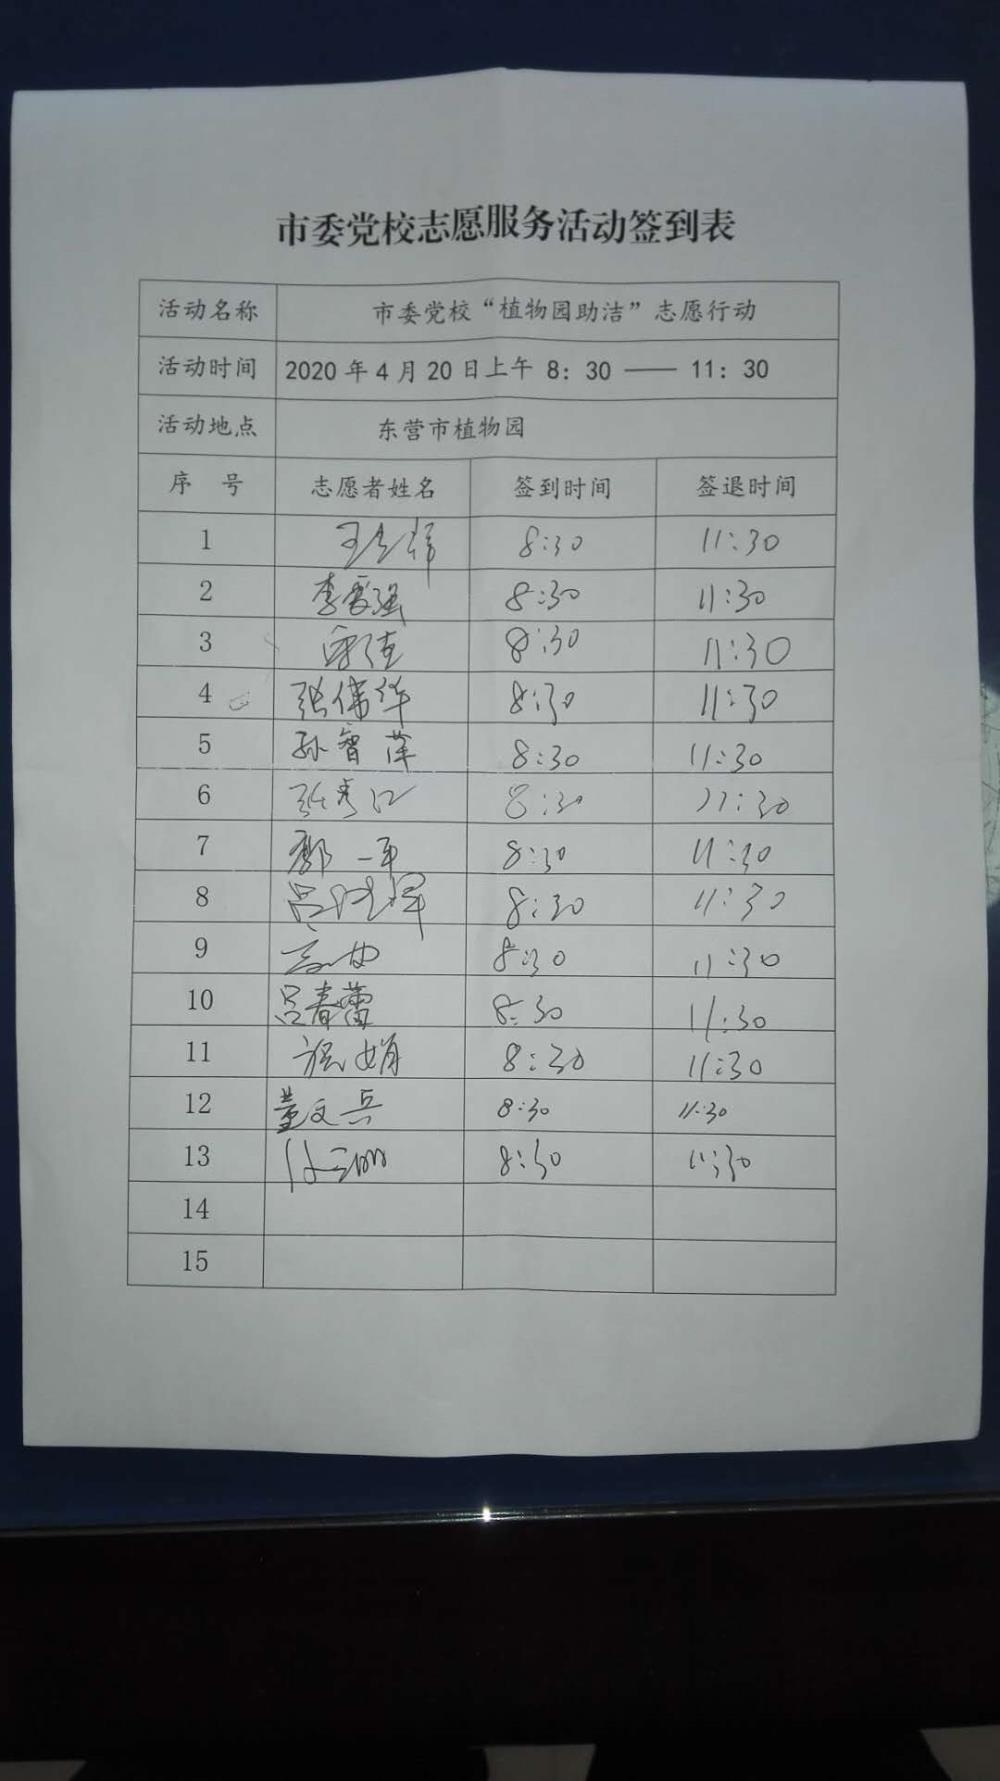 市委党校志愿服务活动签到表
活动名称 市委党校“植物园助洁”志愿行动
活动时间 2020年4月20日上午 8：30 —— 11：30
活动地点 东营市植物园
序 号 志愿者姓名 签到时间 签退时间
1 8:30 11:30
2 李雪强 8:30 11:30
3 8:30 11:30
4 张伟华 8:30 11:30
5 孙智萍 8:30 11:30
6 8:30 11:30
7 8:30 11:30
8 8:30 11:30
9 8:30 11:30
10 吕春蕾 8:30 11:30
11 8:30 11:30
12 董文兵 8:30 11:30
13 8:30 11:30
14
15